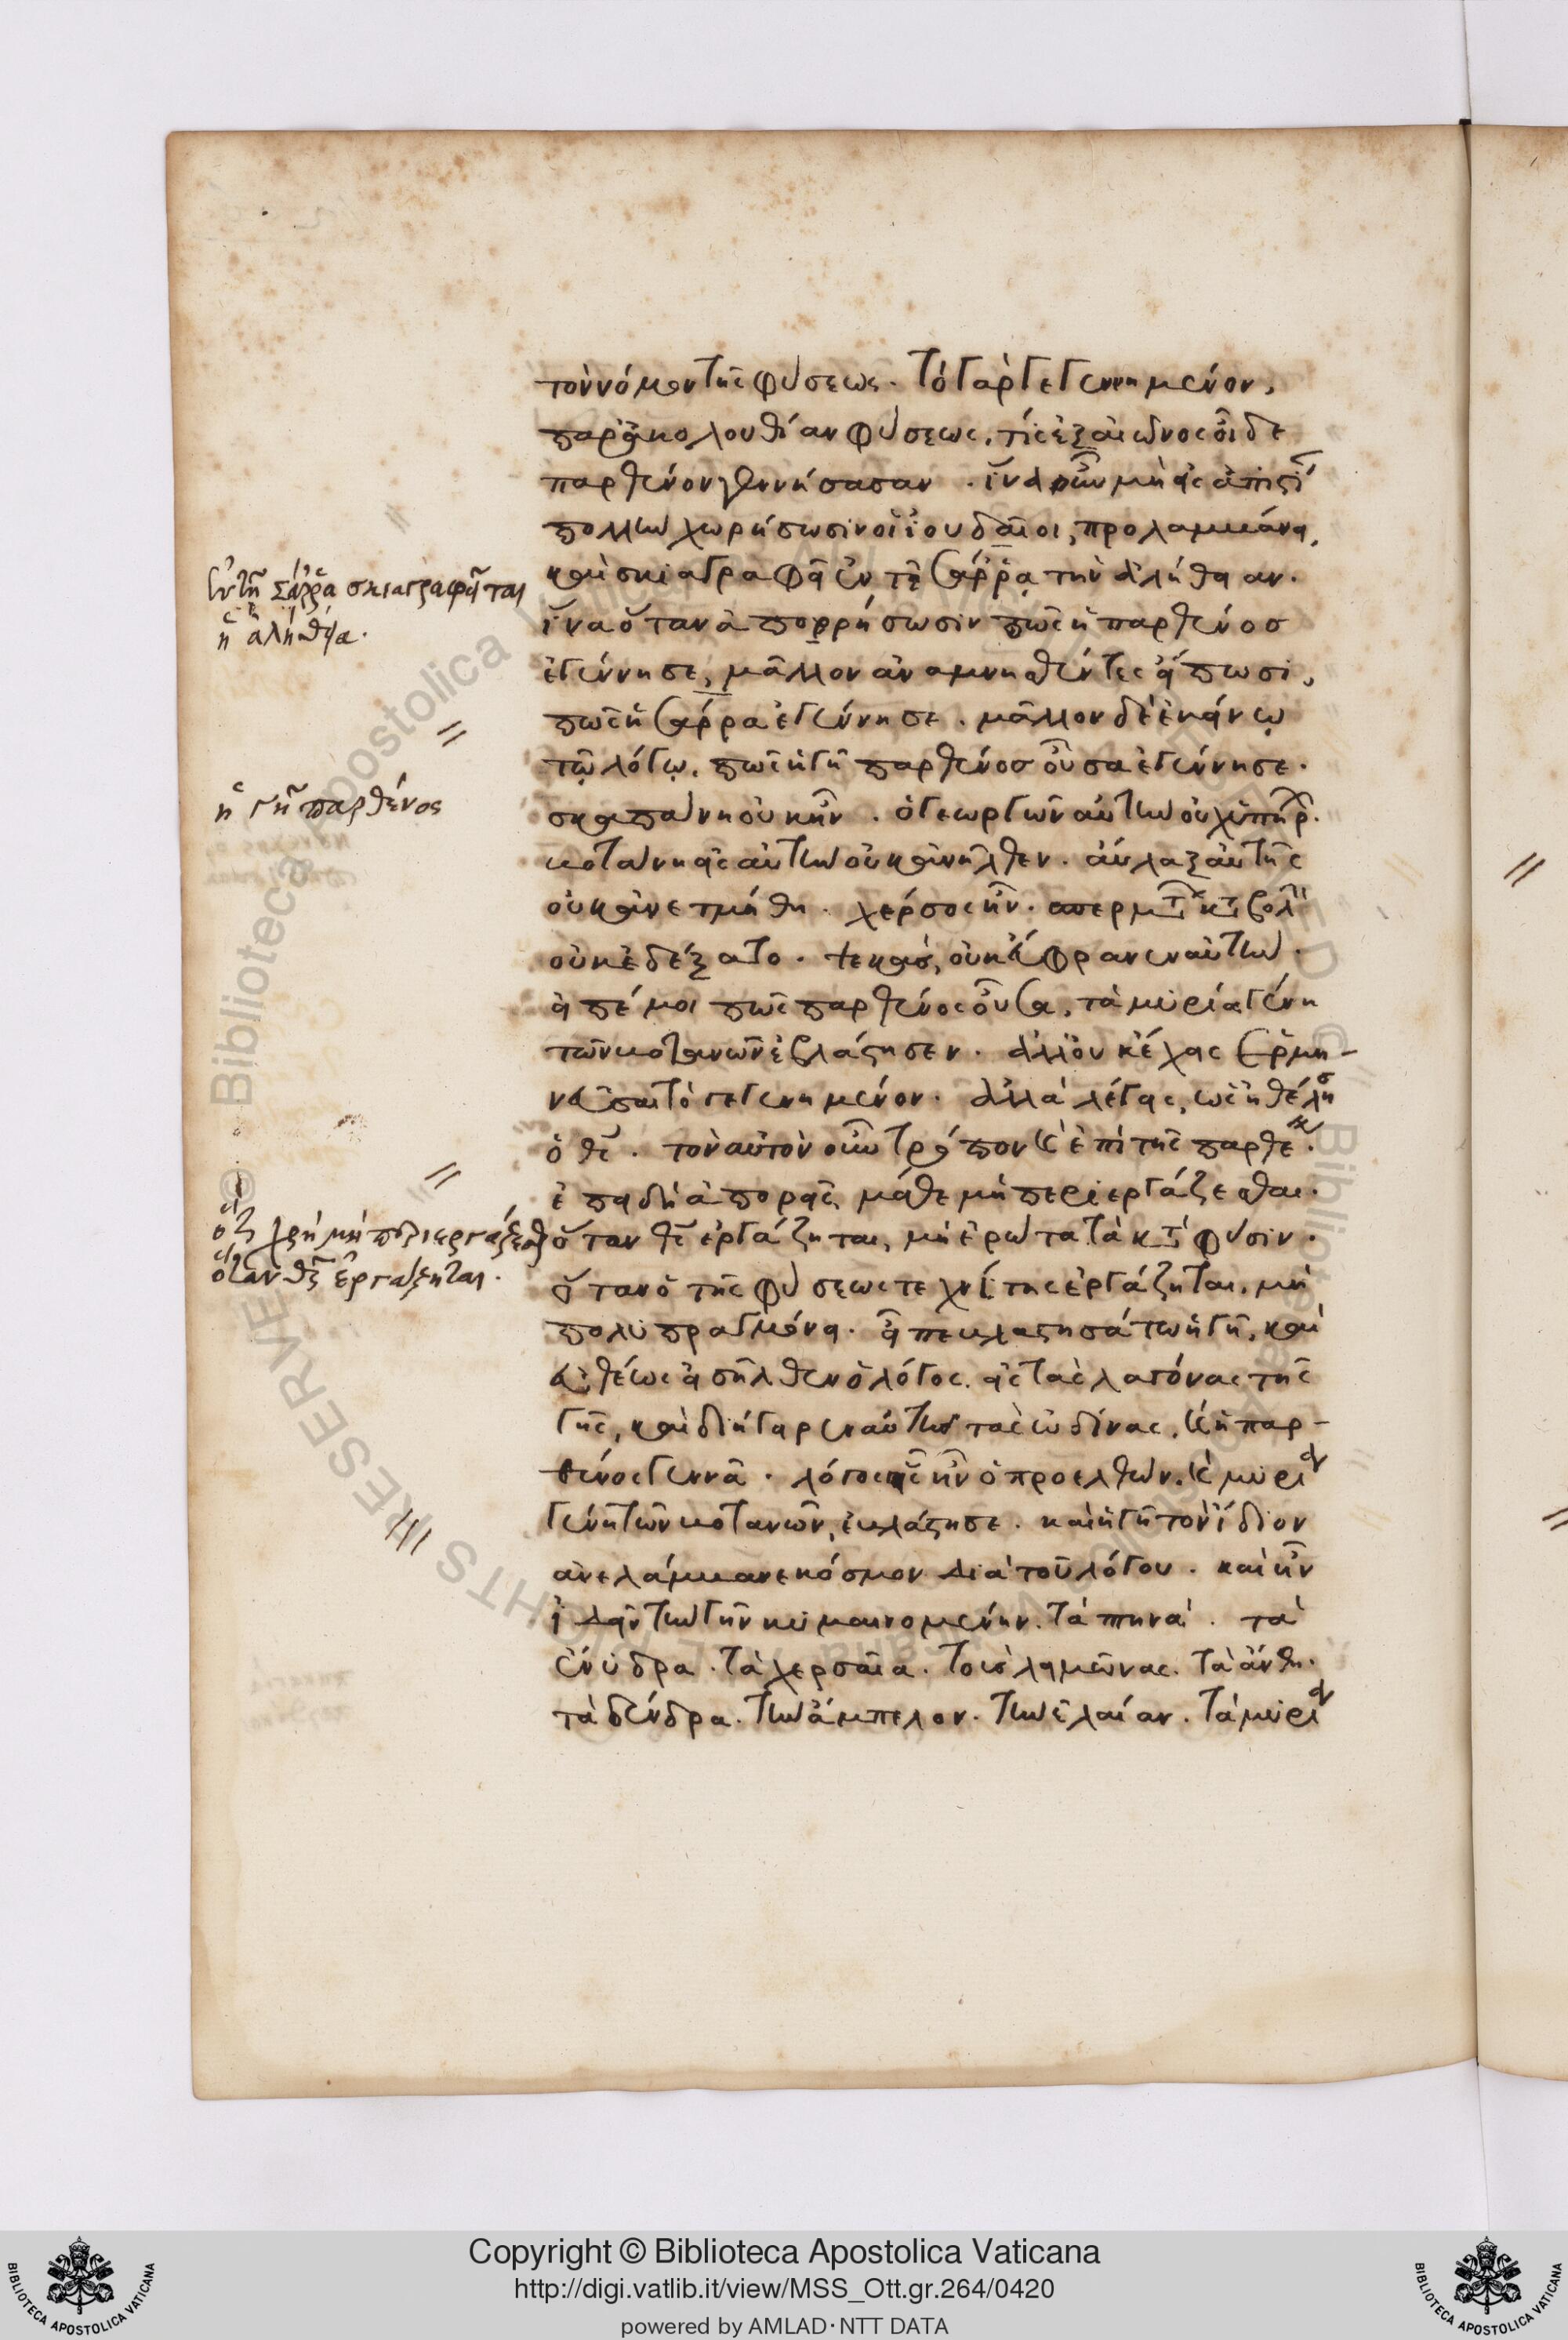 τὸν νόμον τῆς φύσεως. τὸ γὰρ γεγεννημένον,
παρ' ἀκολουθίαν φύσεως. τίς ἐξ αἰῶνος οἶδε
παρθένον γεννήσασαν. ἵνα οὖν μὴ εἰς ἀπιστί
πολλὴν χωρήσωσιν οἱ ἰουδαῖοι, προλαμβάνει,
καὶ σκιαγραφεῖ ἐν τῇ σάρρᾳ τὴν ἀλήθειαν.
ἵνα ὅταν ἀπορρήσωσιν πῶς ἡ παρθένος
ἐγέννησε, μᾶλλον ἀναμνησθέντες εἴπωσι,
πῶς ἡ σάρρα ἐγέννησε. μᾶλλον δὲ ἐκείνῳ
τῷ λόγῳ. πῶς ἡ γῆ παρθένος οὖσα ἐγέννησε.
σκαπάνη οὐκ ἦν. ὁ γεωργῶν αὐτὴν οὐχ ὑπῆρ.
βοτάνη εἰς αὐτὴν οὐκ ἀνῆλθεν. αὖλαξ αὐτῆς
οὐκ ἀνετμήθη. χέρσος ἦν. σπερμτ κτβολὴ
οὐκ ἐδέξατο. ψεκὰς, οὐκ εὔφρανεν αὐτήν.
εἰπέ μοι πῶς παρθένος οὖσα, τὰ μυρία γένη
τῶν βοτανῶν ἐβλάστησεν. ἀλλ' οὐκ ἔχεις ἑρμη-
νεῦσαι τὸ γεγενημένον. ἀλλὰ λέγεις, ὡς ἠθέλη
ὁ θς. τὸν αὐτὸν οὖν τρόπον κ ἐπὶ τῆς παρθε.
ἐπειδὴ ἀπορεῖς, μάθε μὴ περιεργάζεσθαι.
ὅταν θς ἐργάζηται, μὴ ἐρώτα τὰ κτ φύσιν.
ὅταν ὁ τῆς φύσεως τεχνίτης ἐργάζηται, μὴ
πολυπραγμόνει. εἶπε βλαστησάτω ἡ γῆ, καὶ
εὐθέως εἰσῆλθεν ὁ λόγος εἰς τὰς λαγόνας τῆς
γῆς, καὶ διήγειρεν αὐτὴν τὰς ὠδίνας. κ ἡ παρ-
θένος γεννᾶ. λόγος εἷς ἦν ὁ προελθὼν. κ μυρι
γένη τῶν βοτανῶν, ἐβλάστησε. καὶ ἡ γῆ τὸν ἴδιον
ἀνελάμβανε κόσμον διὰ τοῦ λόγου. καὶ ἦν
ἰδεῖν τὴν γῆν κυμαινομένην. τὰ πτηνά. τὰ
ἔνυδρα. τὰ χερσαῖα. τοὺς λειμῶνας. τὰ ἄνθη.
τὰ δένδρα. τὴν ἄμπελον. τὴν ἐλαίαν. τὰ μυρι
ἐν τῇ Σάρρᾳ σκιαγραφεῖται
ἡ ἀλήθεια.
ἡ γῆ παρθένος
ὅτι χρὴ μὴ περιεργάζεσθ
ὅταν θς ἐργάζηται.
Copyright © Biblioteca Apostolica Vaticana
http://digi.vatlib.it/view/MSS_Ott.gr.264/0420
powered by AMLAD·NTT DATA